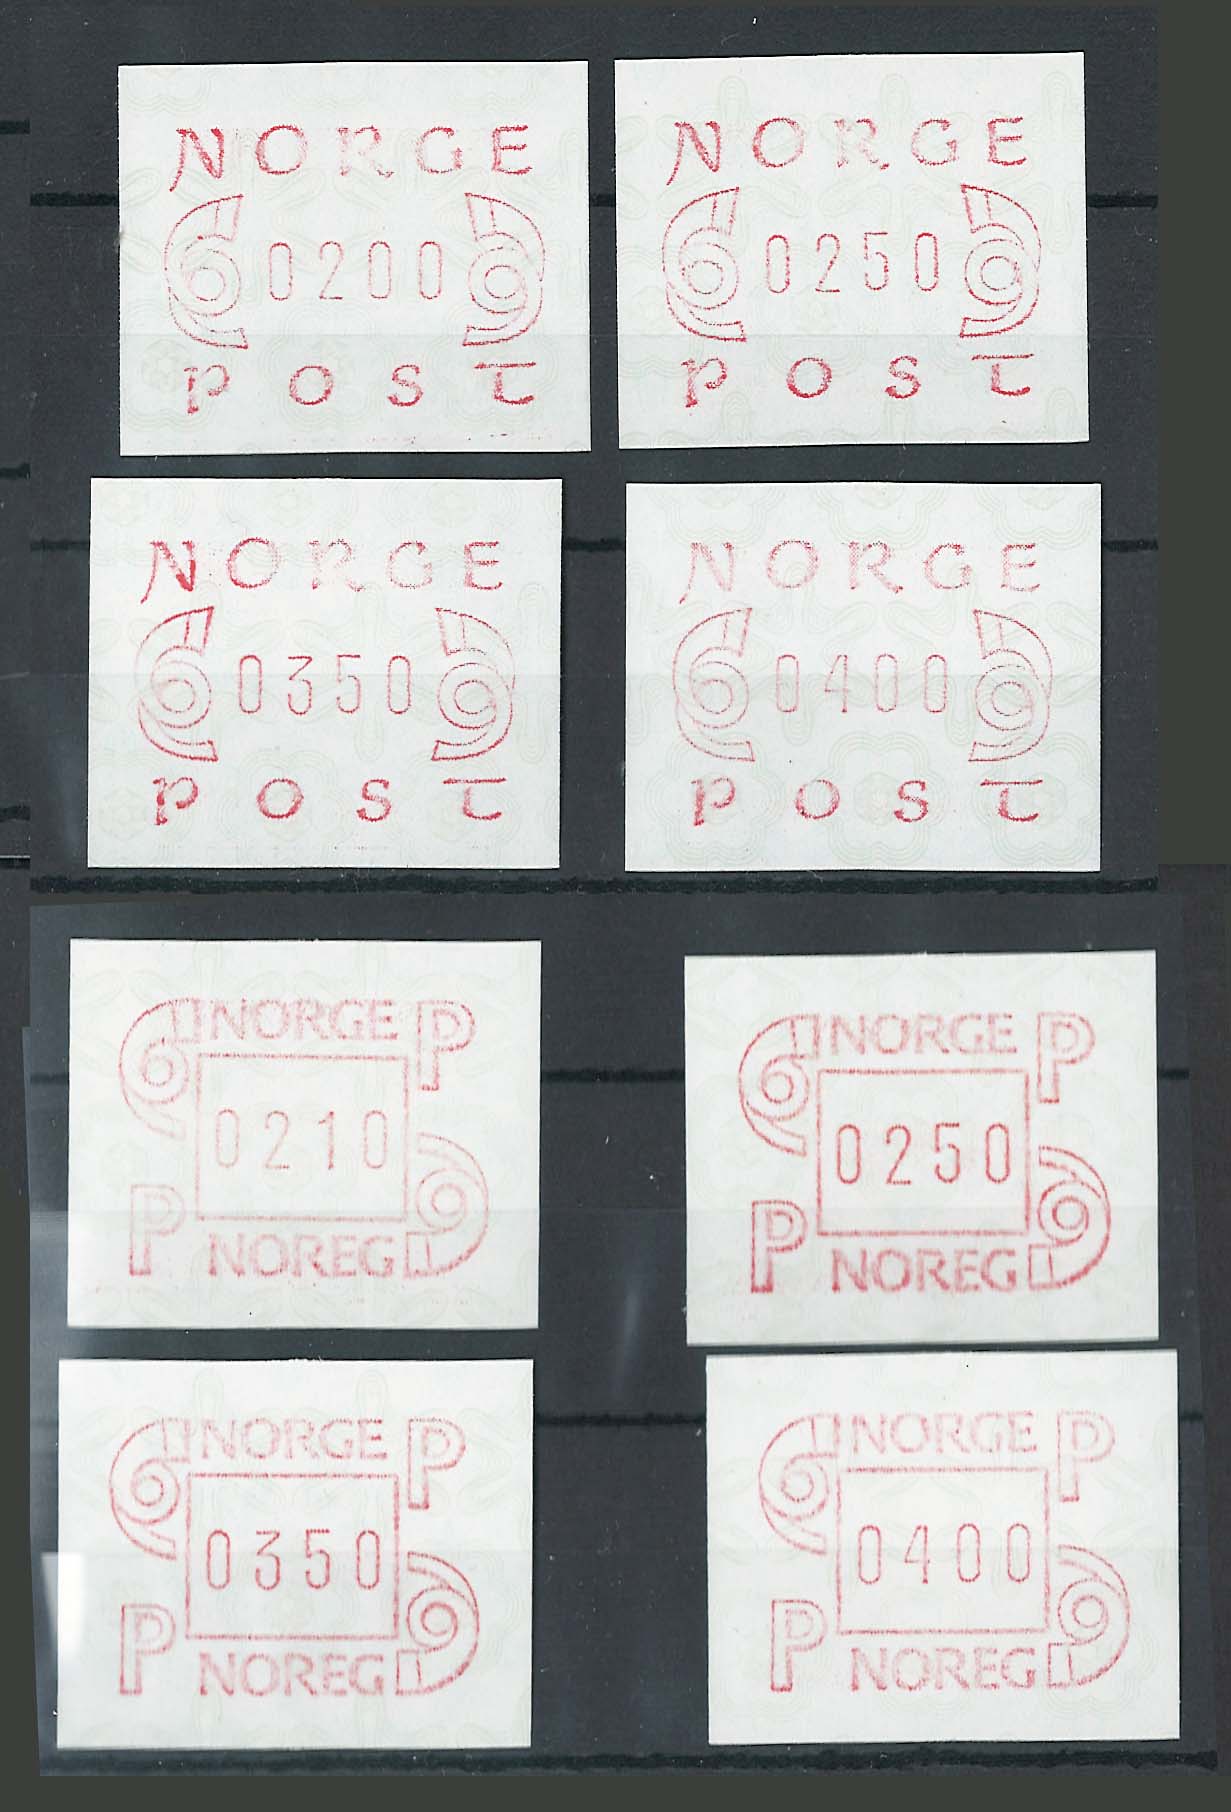 NORGE
0200
POST
NORGE
0250
POST
NORGE
0350
POST
NORGE
0400
POST
NORGE P
0210
P NOREG
NORGE P
0250
P NOREG
NORGE P
0350
P NOREG
NORGE P
0400
P NOREG